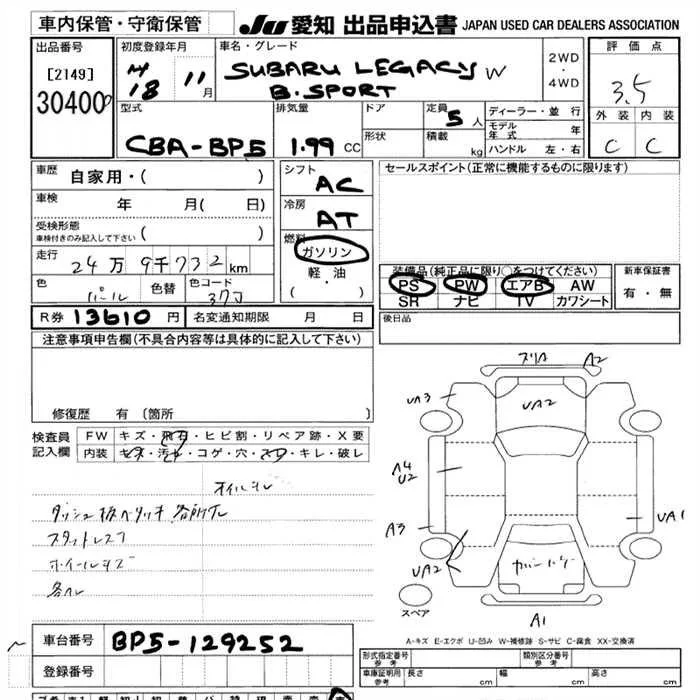 車内保管・守衛保管
JU 愛知 出品申込書 JAPAN USED CAR DEALERS ASSOCIATION
出品番号
[2149]
30400
初度登録年月
H18 11月
車名・グレード
SUBARU LEGACY W
B.SPORT
2WD
・
4WD
評価点
3.5
外装 内装
C C
型式
CBA-BP5
排気量
1.99 CC
ドア
形状
定員 5 人
積載 kg
ディーラー・並行
モデル年式 年
ハンドル 左・右
車歴 自家用・( )
車検 年 月( 日)
受検形態
車検付きのみ記入して下さい ( )
走行 24万9千732km
色 パール 色替 色コード 37J
シフト AC
冷房 AT
燃料 ガソリン
軽・油
( ・ )
セールスポイント(正常に機能するものに限ります)
装備品(純正品に限り○をつけてください)
PS PW エアB AW
SR ナビ TV カワシート
新車保証書
有・無
R券 13610 円 名変通知期限 月 日
後日品
注意事項申告欄(不具合内容等は具体的に記入して下さい)
修復歴 有 〔箇所 〕
検査員
記入欄
FW キズ・飛石・ヒビ割・リペア跡・X要
内装 キズ・汚・コゲ・穴・スレ・キレ・破レ
オイルシレ
ダッシュ板ベタツキ 各所凹
スタットレス
ホイールキズ
各ヘレ
ズリA A2
UA3
UA2
A4
U2
A3
UA1
UA2
A1
スペア
A-キズ E-エクボ U-凹み W-補修跡 S-サビ C-腐食 XX-交換済
車台番号 BP5-129252
登録番号
形式指定番号
参考
類別区分番号
参考
車庫証明用
参考
長さ cm 幅 cm 高さ cm